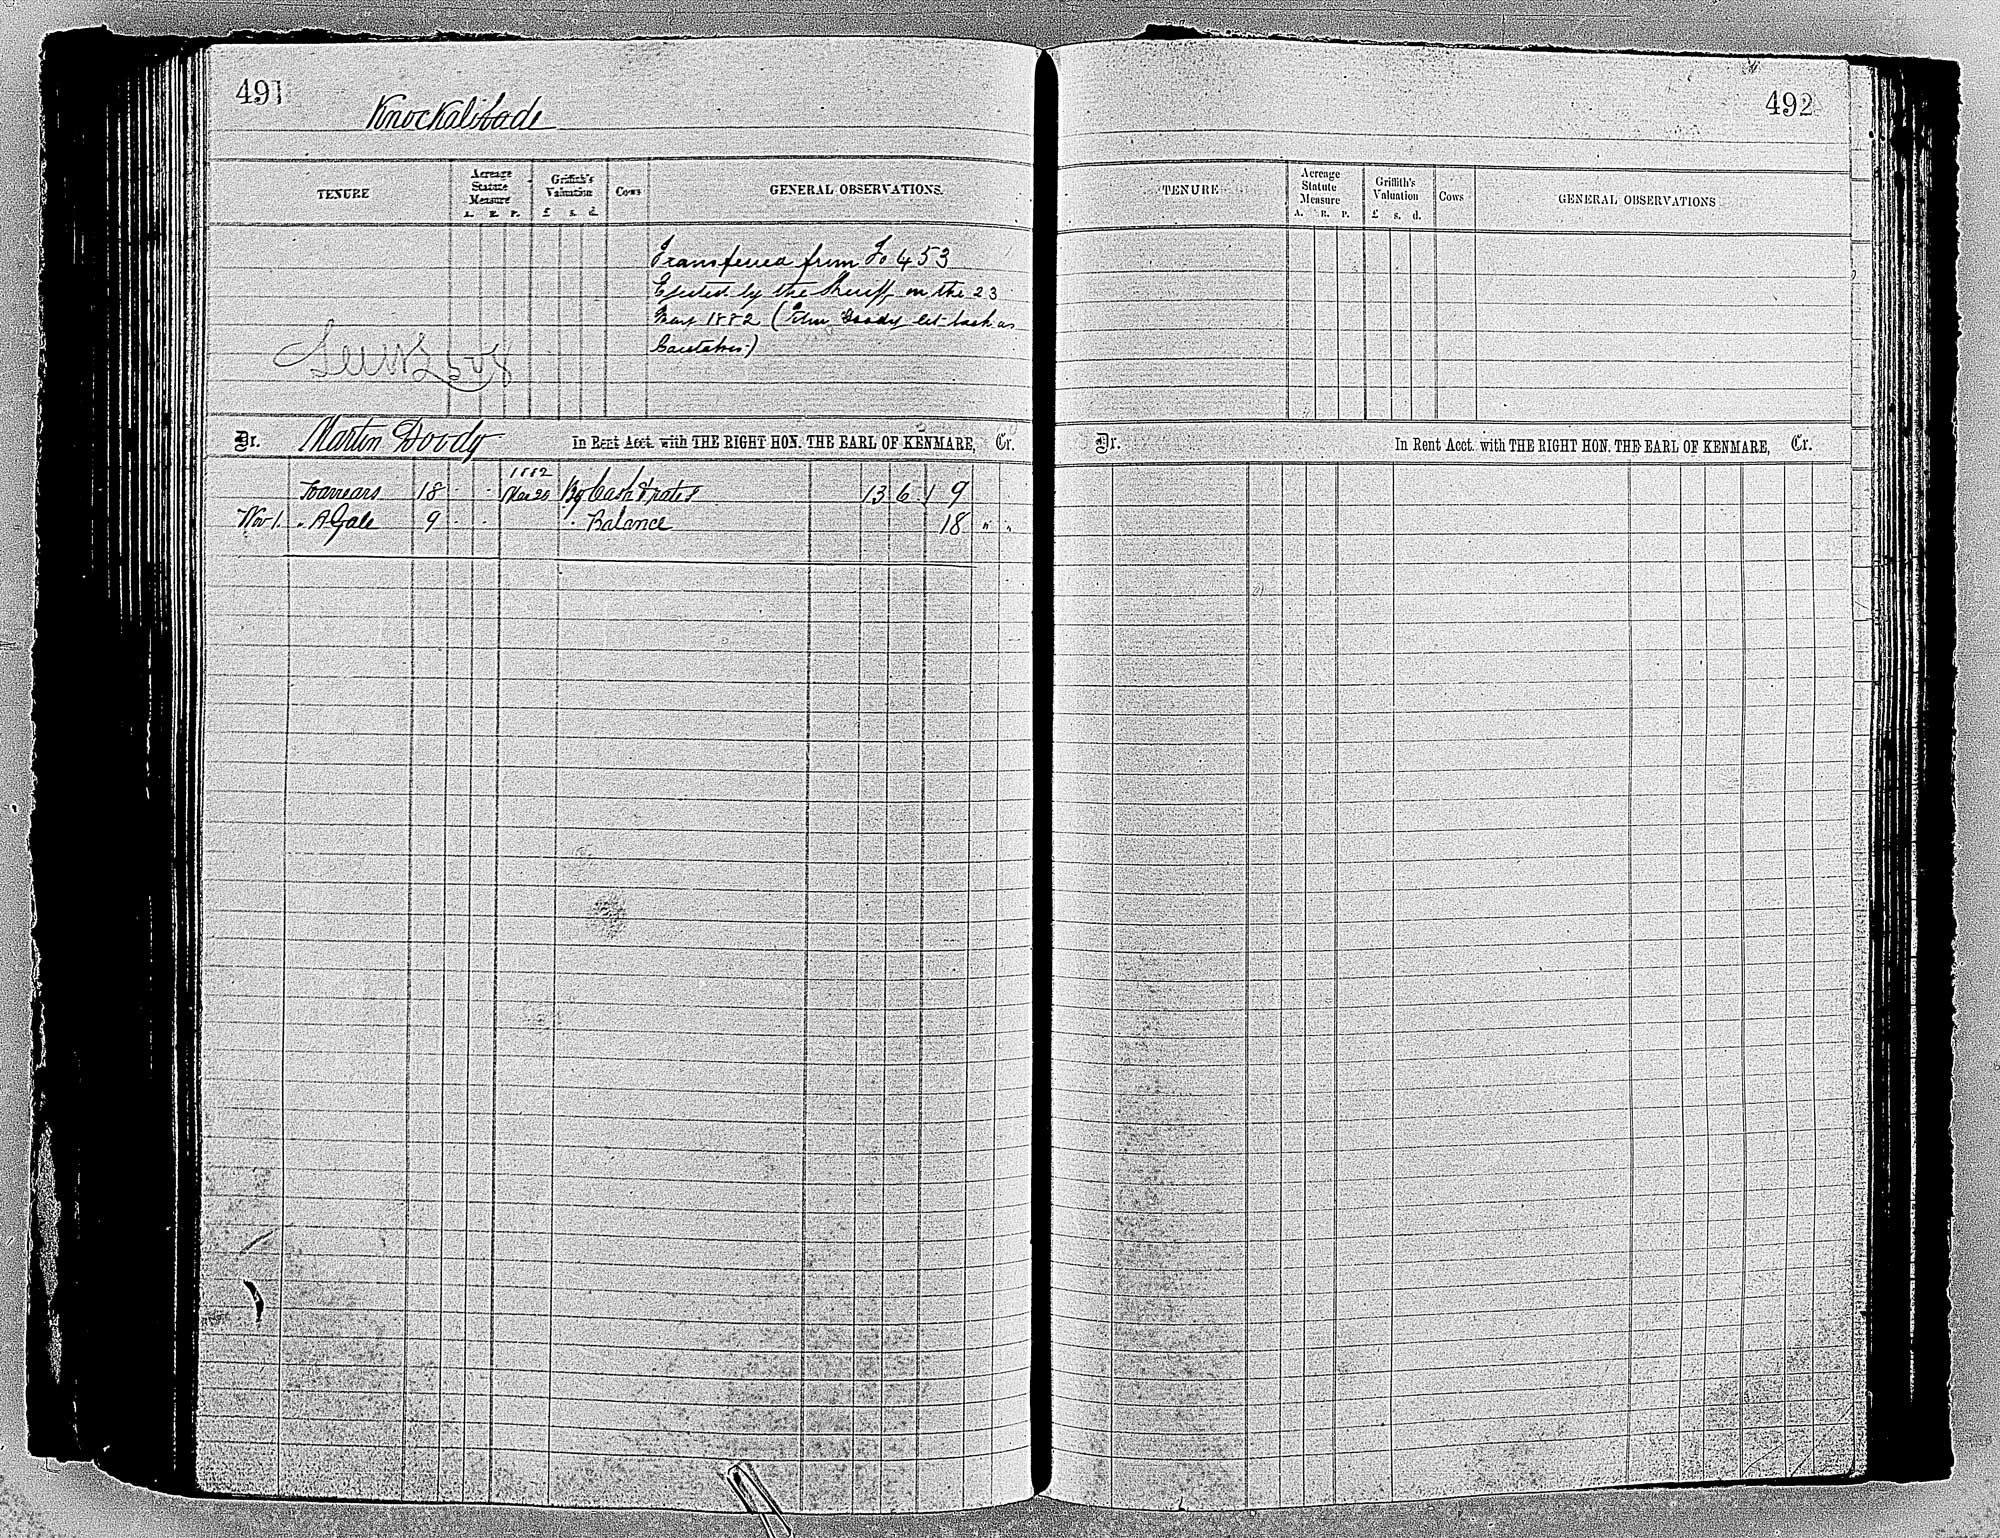 491
Knockalibade
TENURE
Acreage Statute Measure
A. R. P.
Griffith's Valuation
£ s. d.
Cows
GENERAL OBSERVATIONS.
Transferred from Fo 453
Ejected by the Sheriff on the 23
May 1882 (John Doody let back as
Caretaker)
Dr. Martin Doody In Rent Acct. with THE RIGHT HON. THE EARL OF KENMARE, Cr.
1882
To arrears 18 . . Mar 20 By Cash & rates 13 6 . 9
Nov 1. " A Gale 9 . . " Balance 18 " "
492
TENURE
Acreage Statute Measure
A. R. P.
Griffith's Valuation
£ s. d.
Cows
GENERAL OBSERVATIONS
Dr. In Rent Acct. with THE RIGHT HON. THE EARL OF KENMARE, Cr.